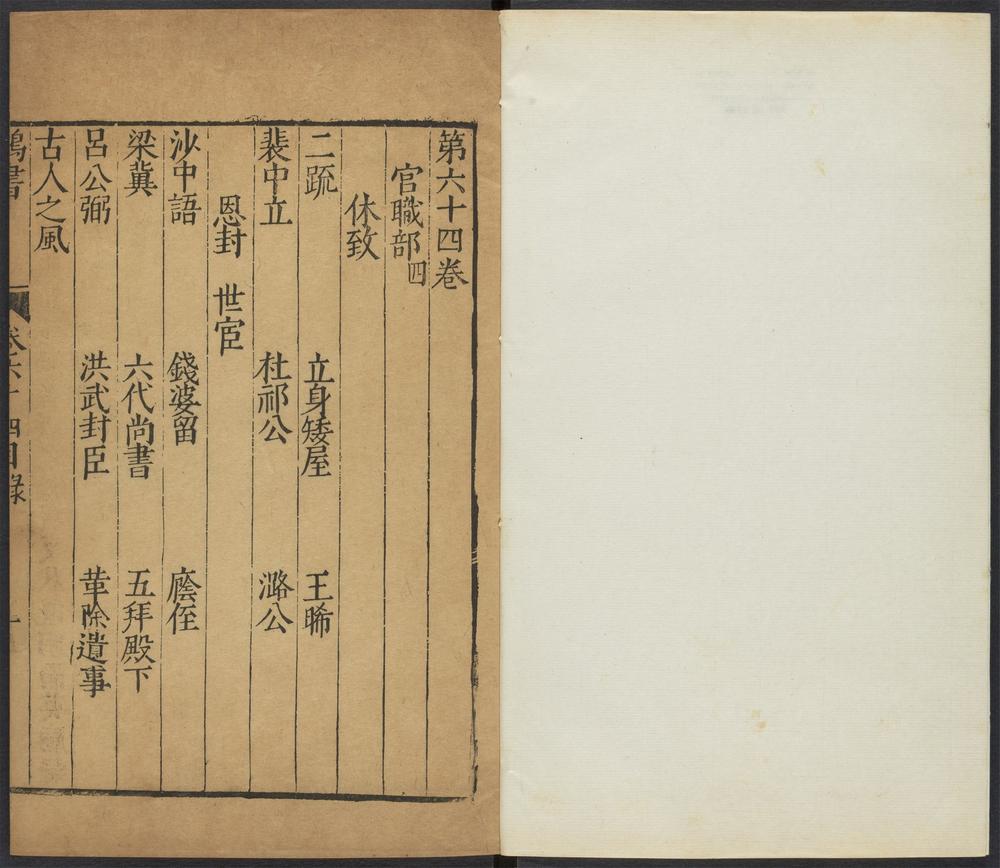 第六十四卷
官職部四
休致
二疏 立身矮屋 王晞
裴中立 杜祁公 潞公
恩封 世宦
沙中語 錢婆留 廕侄
梁冀 六代尚書 五拜殿下
呂公弼 洪武封臣 革除遺事
古人之風
鴻書 卷六十四目錄 一